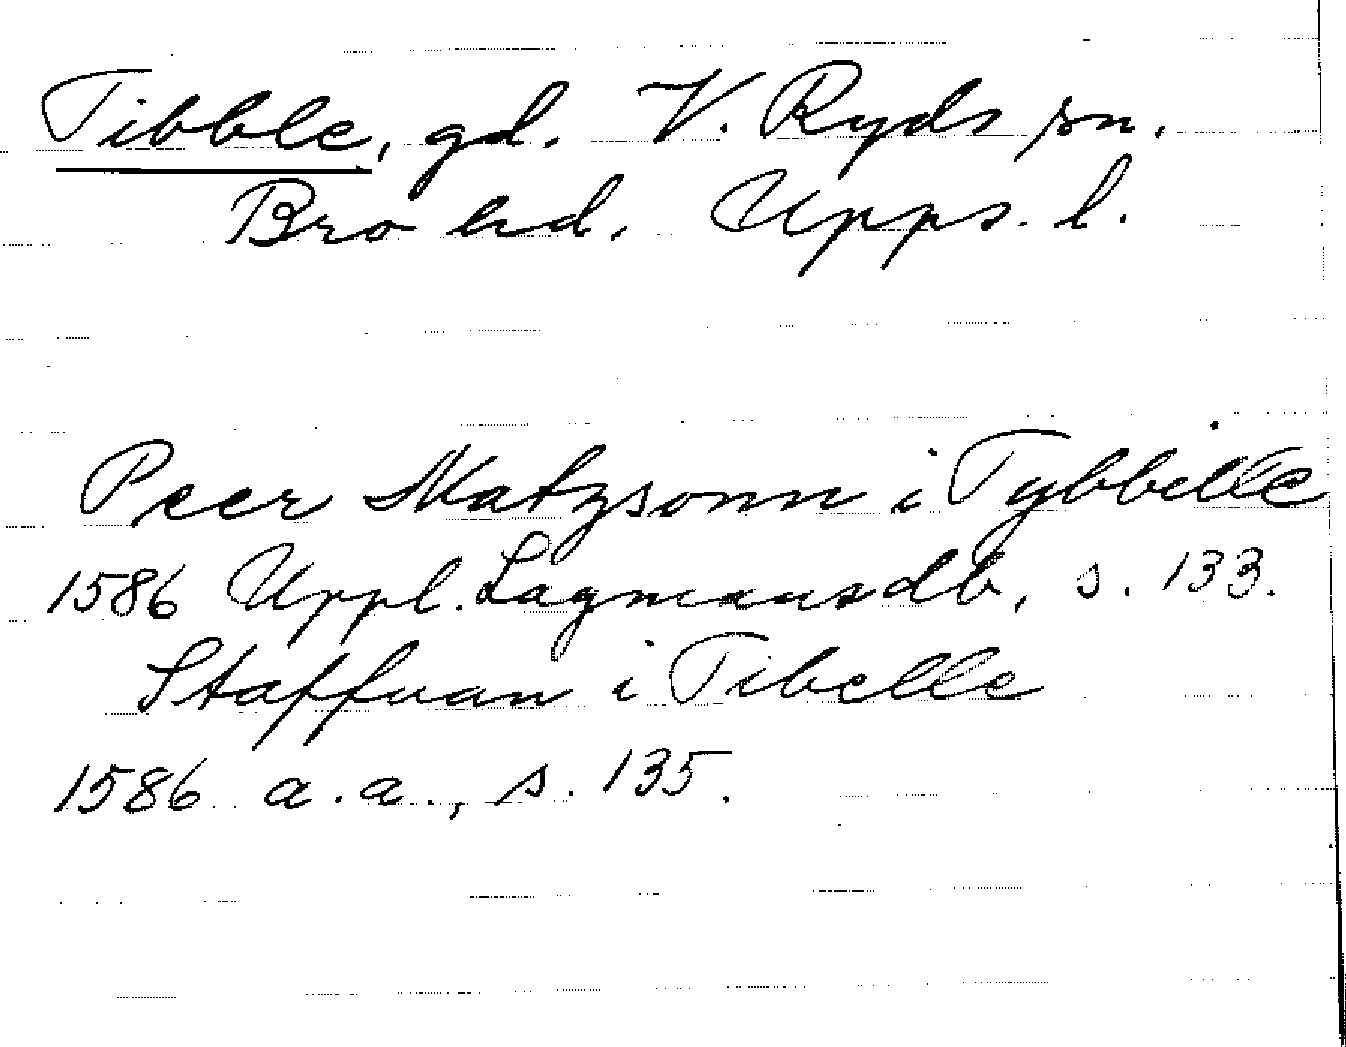 Tibble, gd. V. Ryds sn.
Bro hd. Upps. l.
Peer Matzsonn i Tybbelle
1586 Uppl. Lagmansdb, s. 133.
Staffuan i Tibelle
1586 a.a., s. 135.